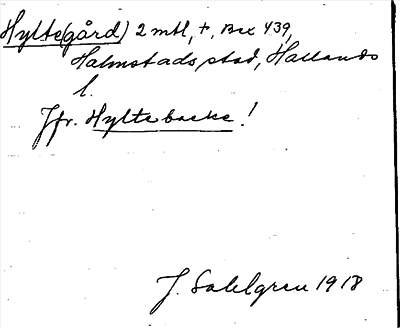 Hylte(gård) 2 mtl, +, Bex 439,
Halmstads stad, Hallands
l.
Jfr. Hyltebacke!
J. Sahlgren 1918